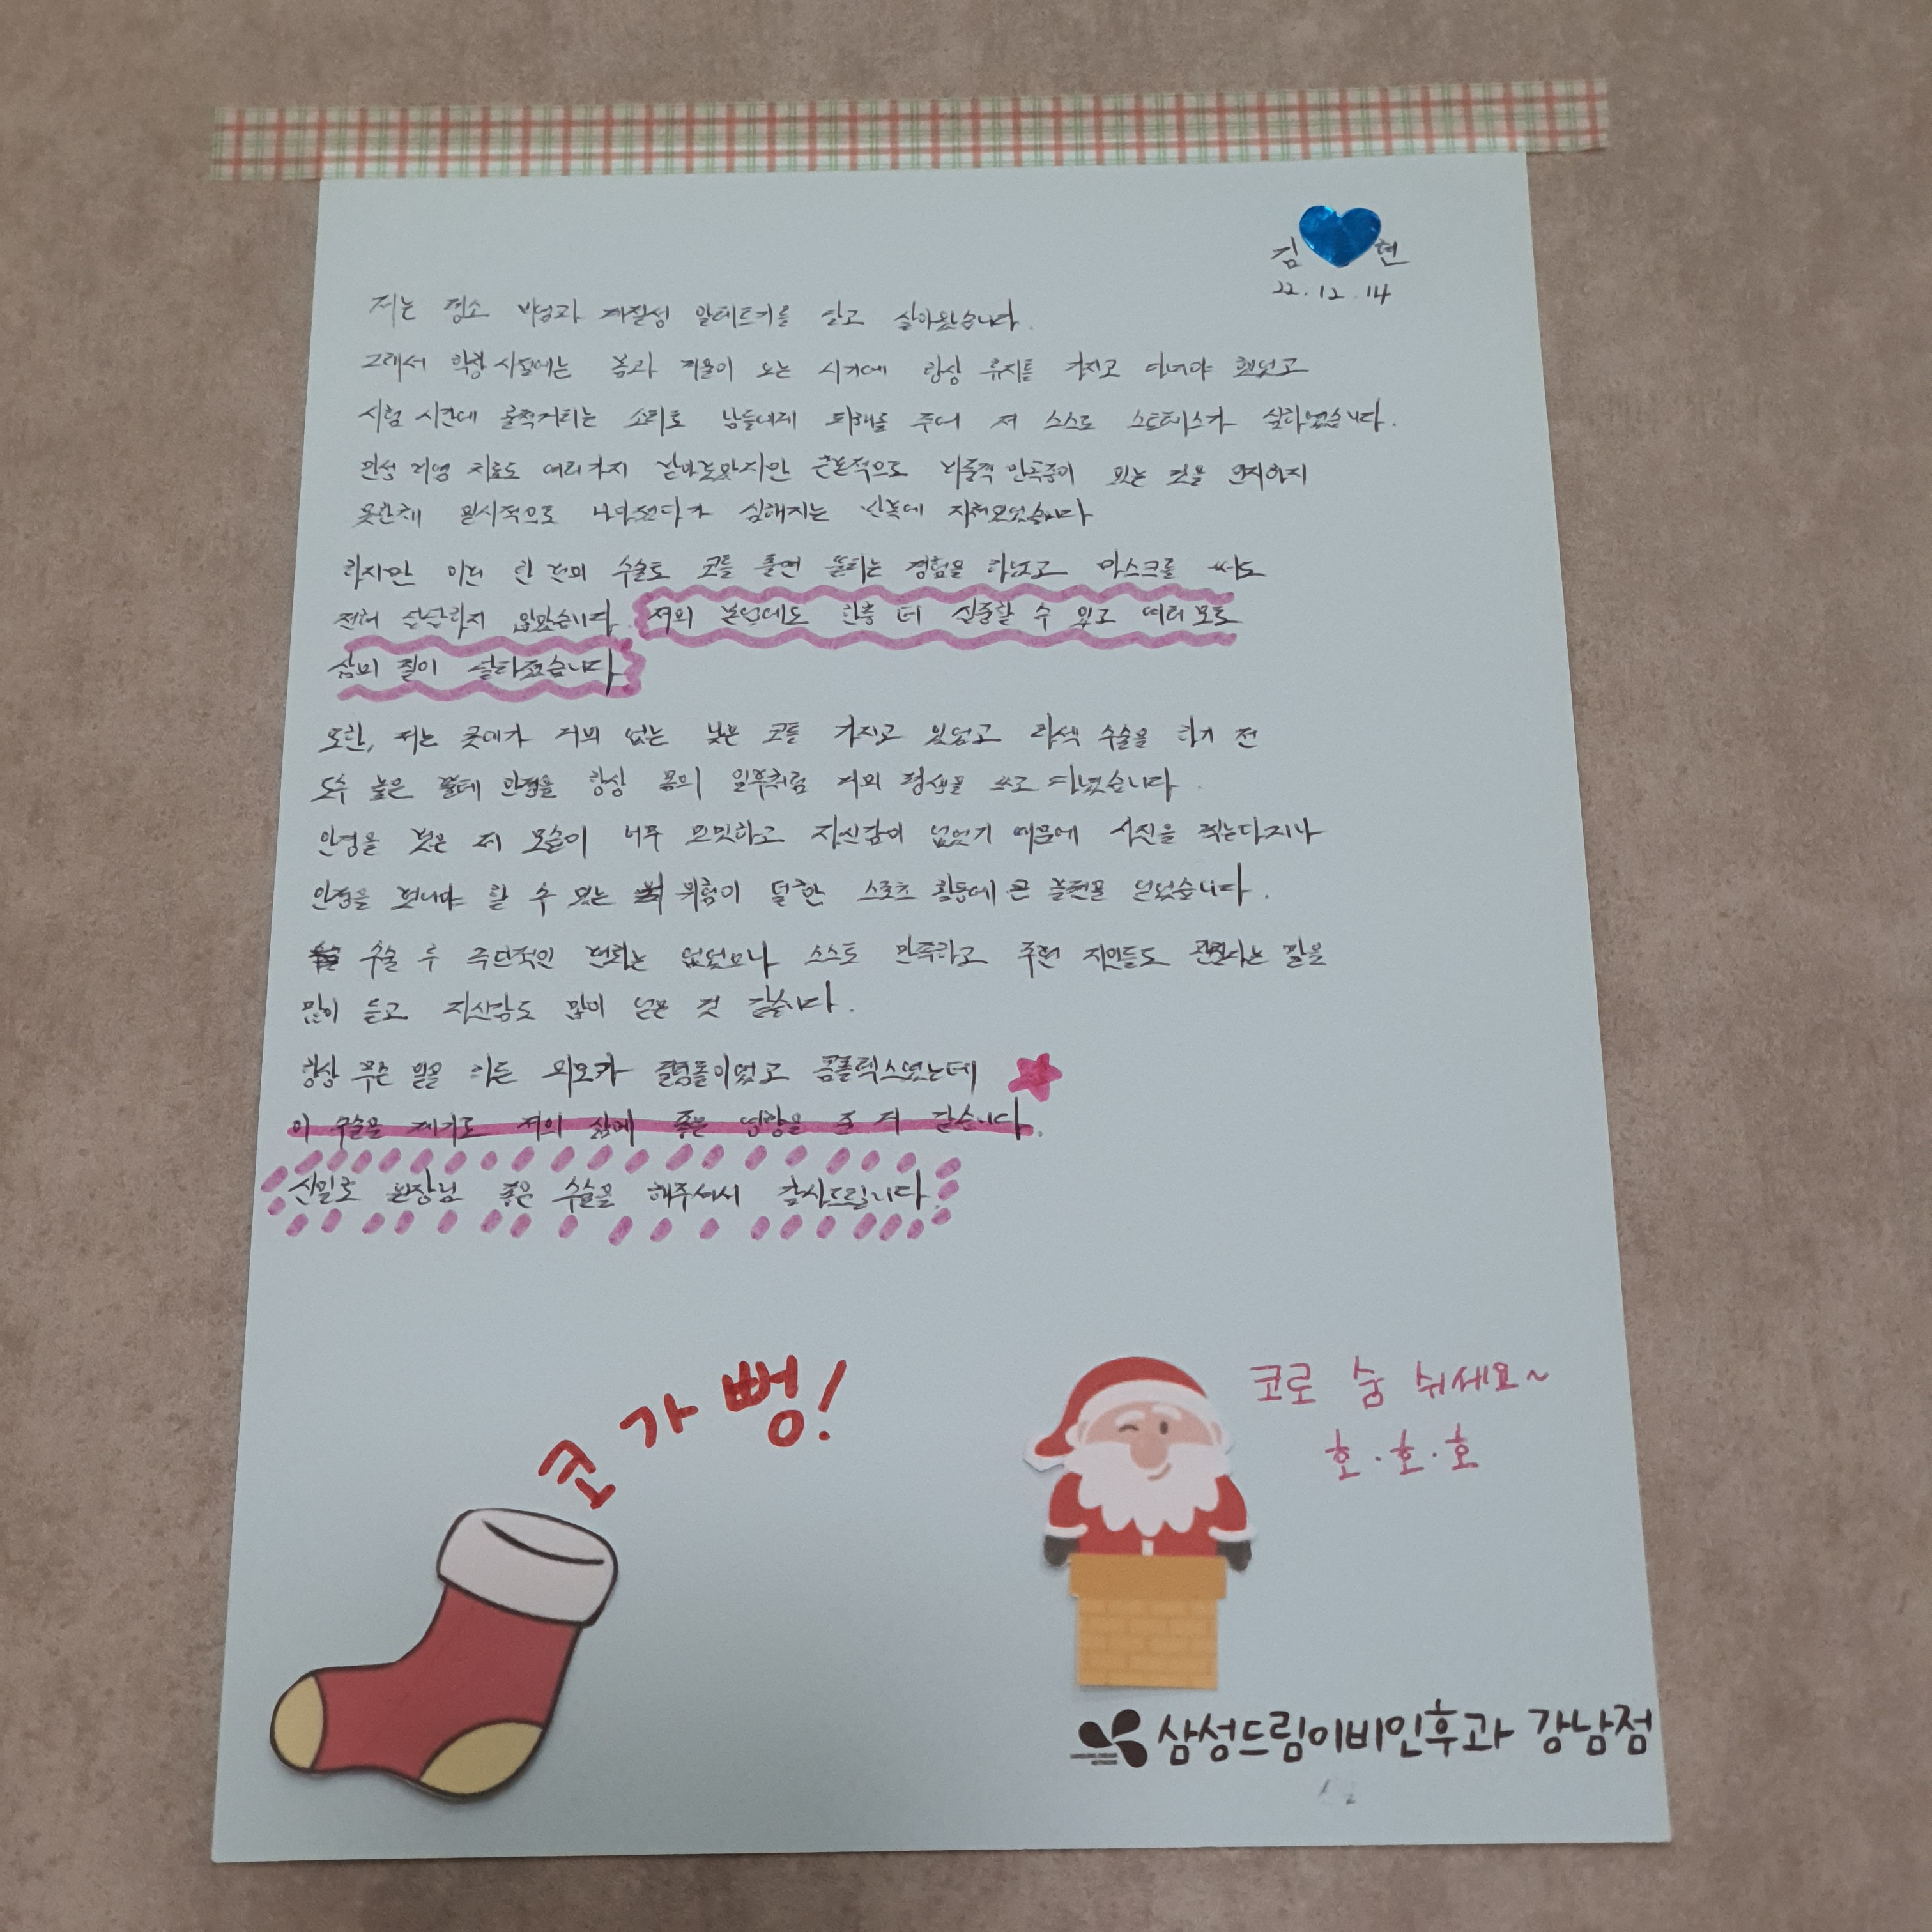 김 현
22.12.14
저는 평소 비염과 계절성 알레르기를 달고 살아왔습니다.
그래서 학창시절에는 봄과 겨울이 오는 시기에 항상 휴지를 가지고 다녀야 했었고
시험 시간에 훌쩍거리는 소리로 남들에게 피해를 주어 저 스스로 스트레스가 심하였습니다.
만성 비염 치료도 여러가지 받아보았지만 근본적으로 비중격 만곡증이 있는 것을 인지하지
못한채 일시적으로 나아졌다가 심해지는 반복에 지쳐있었습니다
하지만 이번 한 번의 수술로 코를 풀면 뚫리는 경험을 하였고 마스크를 써도
전혀 답답하지 않았습니다. 저의 본업에도 한층 더 집중할 수 있고 여러모로
삶의 질이 달라졌습니다
또한, 저는 콧대가 거의 없는 낮은 코를 가지고 있었고 라섹 수술을 하기 전
도수 높은 뿔테 안경을 항상 몸의 일부처럼 거의 평생을 쓰고 다녔습니다.
안경을 벗은 제 모습이 너무 밋밋하고 자신감이 없었기 때문에 사진을 찍는다거나
안경을 벗어야 할 수 있는 위험이 덜한 스포츠 활동에 큰 불편을 얻었습니다.
수술 후 극단적인 변화는 없었으나 스스로 만족하고 주변 지인들도 괜찮다는 말을
많이 듣고 자신감도 많이 얻은 것 같습니다.
항상 무슨 일을 하든 외모가 걸림돌이었고 콤플렉스였는데
이 수술을 계기로 저의 삶에 좋은 영향을 준 거 같습니다.
신일호 원장님 좋은 수술을 해주셔서 감사드립니다.
코가 뻥!
코로 숨 쉬세요~
호·호·호
삼성드림이비인후과 강남점